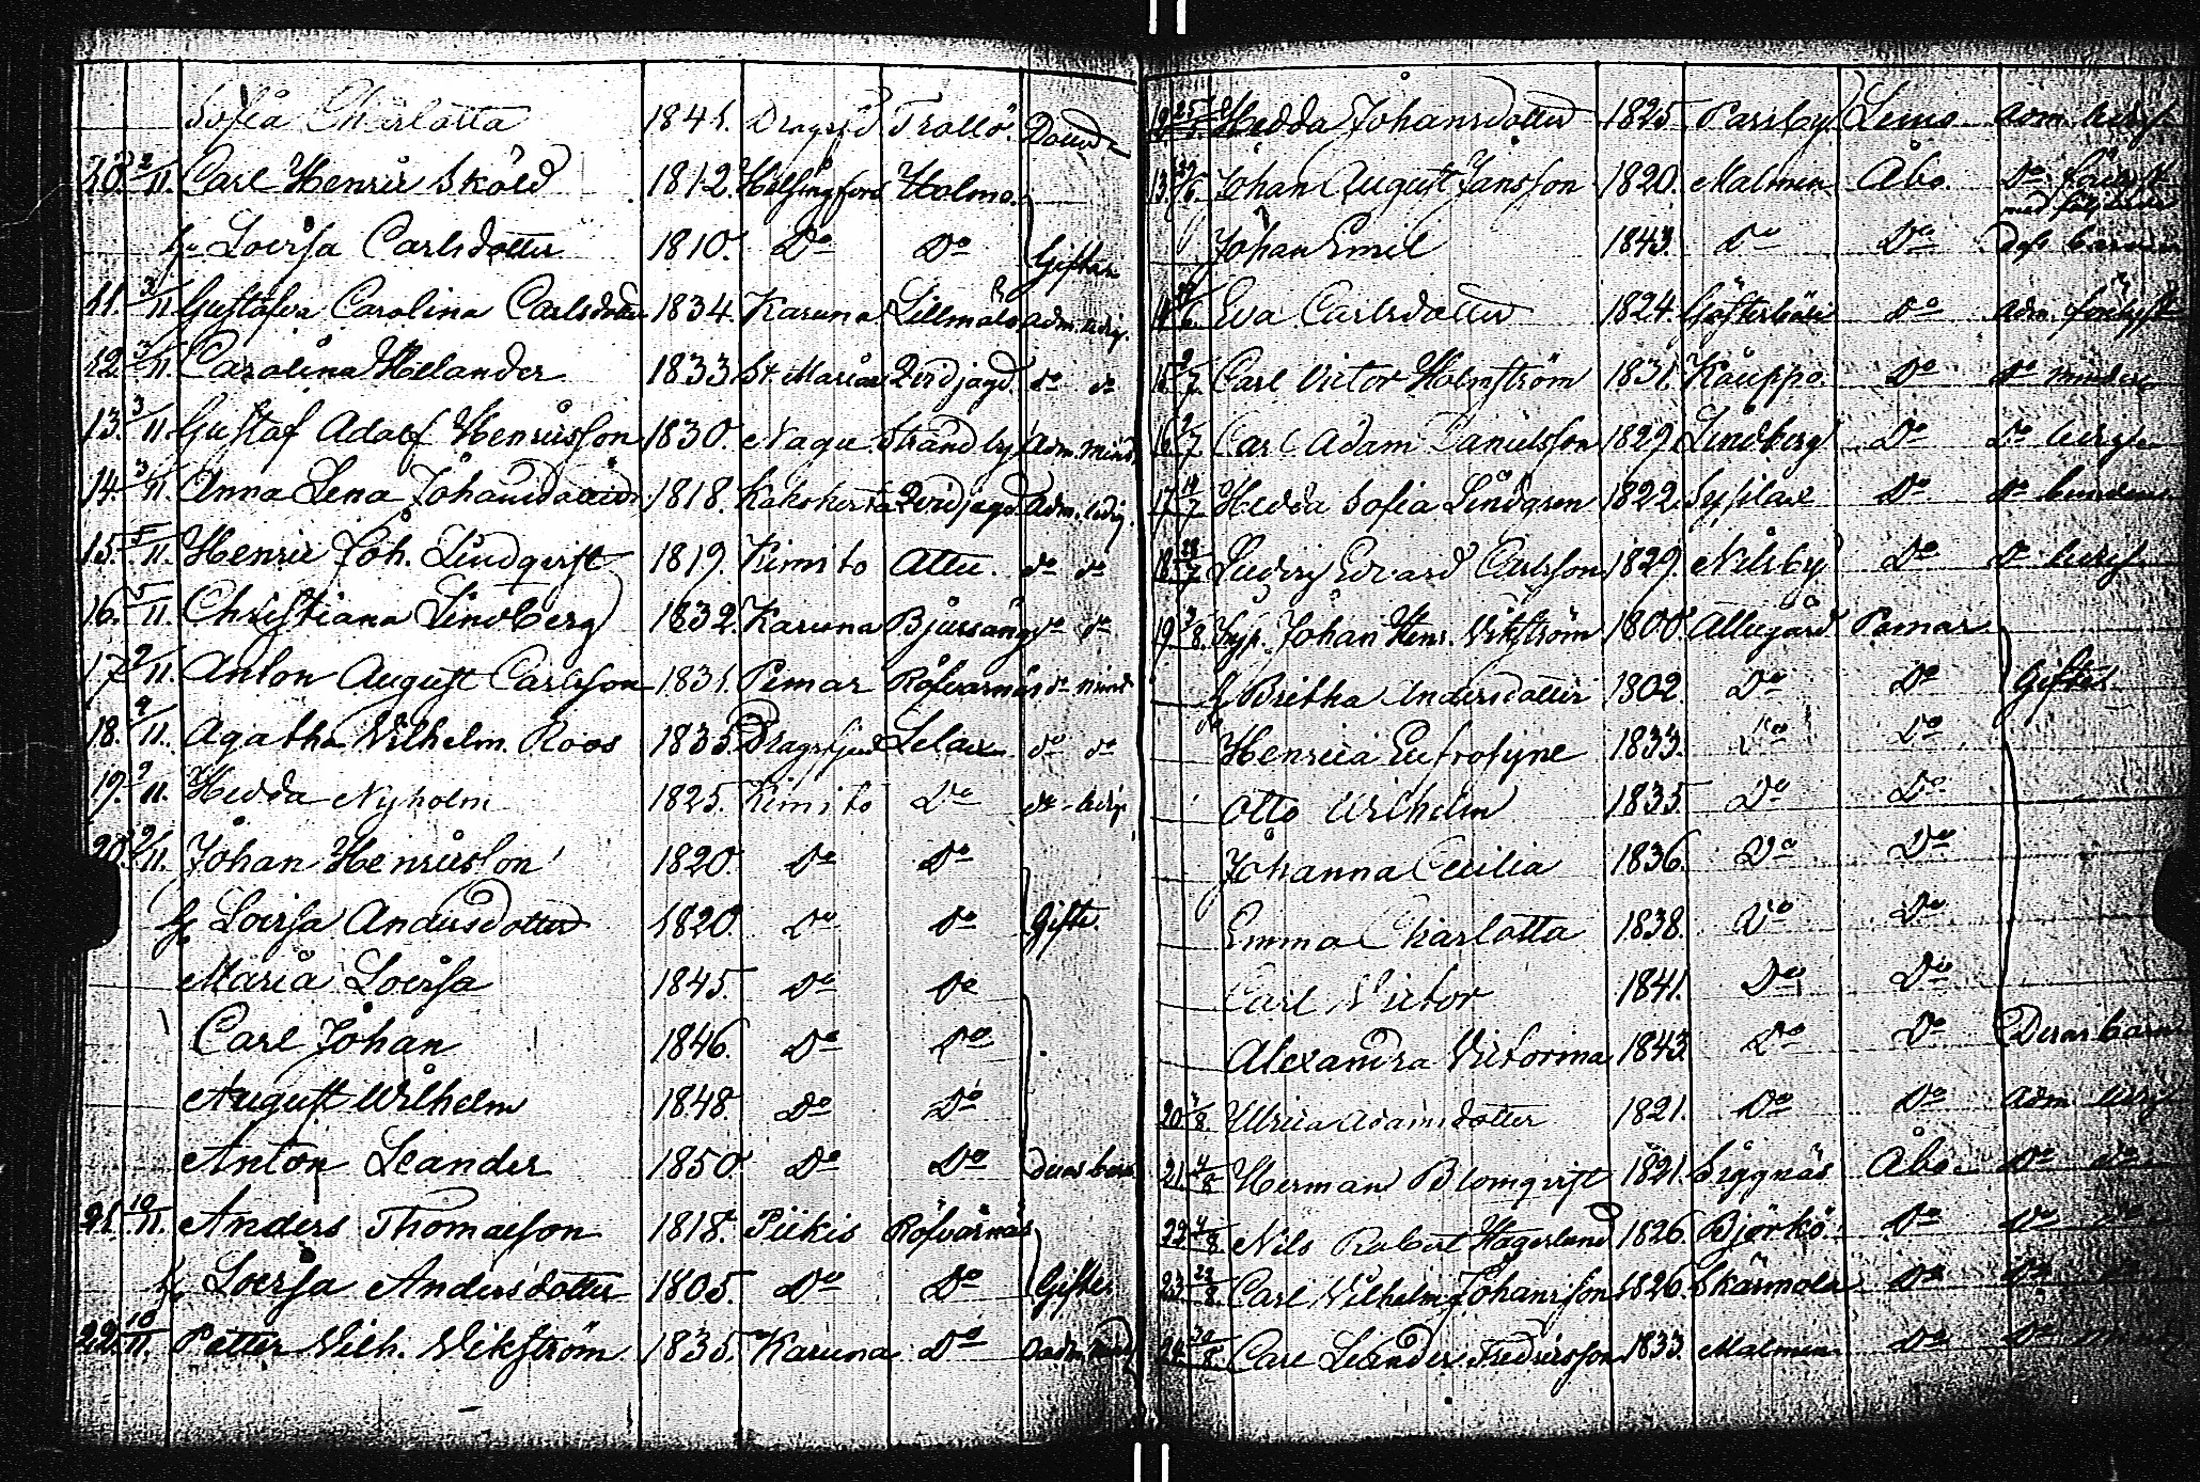 Sofia Charlotta 1841. Dragsfjd Trollö.
10. 2/11. Carl Henric Sköld 1812. Helsingfors Holmo.
h. Lovisa Carlsdotter 1810. Do Do Giftan
11. 3/11 Gustafva Carolina Carlsdotter 1834. Karuna Lillmälö adm. ledig.
12. 3/11 Carolina Helander 1833 St. Mariae Qvidjagd. do do
13. 3/11. Gustaf Adolf Henricsson 1830. Nagu Strandby adm. mind.
14. 3/11. Anna Lena Johansdotter 1818. Kakskerta Qvidjagd adm. ledig.
15. 5/11. Henric Joh. Lindqvist 1819. Kimito Attu. do do
16. 5/11. Christiana Lindberg 1832. Karuna Bjursäng do do
17. 9/11. Anton August Carlsson 1831. Pemar Röfvarnäs do mind.
18. 9/11. Agatha Vilhelm. Roos 1835. Dragsfjerd Lelax do do
19. 9/11. Hedda Nyholm 1825. Kimito Do do ledig
20. 9/11. Johan Henricsson 1820. Do Do
h. Lovisa Andersdotter 1820. Do Do Gifte.
Maria Lovisa 1845. Do Do
Carl Johan 1846. Do Do
August Wilhelm 1848. Do Do
Anton Leander 1850. Do Do deras barn
21. 10/11. Anders Thomasson 1818. Piikis Röfvarnäs
h. Lovisa Andersdotter 1805. Do Do Gifte.
22. 10/11. Petter Vilh. Wikström 1835. Karuna Do adm. mind
12. Hedda Johansdotter 1825. Parsby Lemo adm. ledig
13. Johan August Jansson 1820. Malmen Åbo. Do
Johan Emil 1843. Do Do dess barn
14. Eva Carlsdotter 1824. Do adm.
15. 2/7 Carl Victor Holmström 1831. Kauppo Do Do minderg
16. 2/7 Carl Adam Danielsson 1829. Lindberg Do Do ledig
17. Hedda Sofia Lindgren 1822. Do Do
18. Ludvig Edvard Carlsson 1829. Nilsby Do Do ledig
19. 3/8. Johan Henr. Wikström 1800. Allugård Pemar.
h. Britha Andersdotter 1802. Do Do Gifta
Henrica Eufrosyne 1833. Do Do
Otto Wilhelm 1835. Do Do
Johanna Cecilia 1836. Do Do
Emma Charlotta 1838. Do Do
Carl Victor 1841. Do Do
Alexandra Victorina 1843. Do Do Deras barn
20. Ulrica Adamsdotter 1821. Do Do adm. ledig
21. 4/8 Herman Blomqvist 1821. Siggnäs Åbo Do do
22. 4/8 Nils Robert Hägerlund 1826. Björkö. Do Do
23. 22/8 Carl Vilhelm Johansson 1826. Skärmola Do Do
24. 30/8 Carl Leander Fredricsson 1833. Malmen Do Do